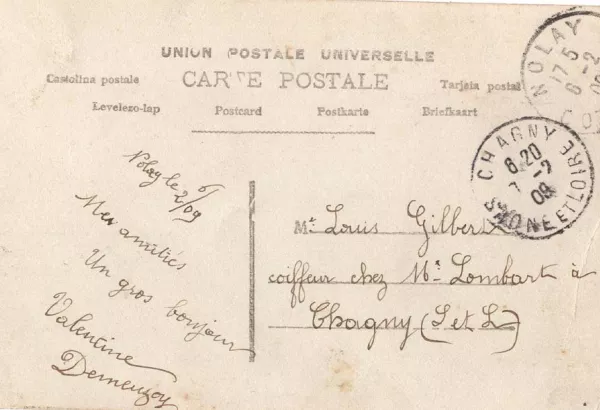 UNION POSTALE UNIVERSELLE
CARTE POSTALE
Cartolina postale
Tarjeta postal
Levelezo-lap
Postcard
Postkarte
Briefkaart
NOLAY
17 5
6 -2
09
CHAGNY
6.20
7 -2
09
SAONE ET LOIRE
Nolay le 6/2/09
Mes amitiés
Un gros bonjour
Valentine
Demeuzoy
Mr. Louis Gilbert
coiffeur chez Mr. Lombart à
Chagny (S et L)